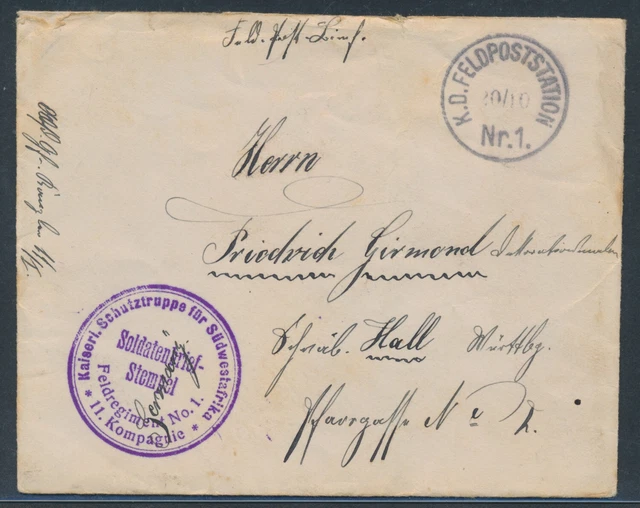 Feld-Post-Brief.
K.D. FELDPOSTSTATION
Nr. 1.
Herrn
Friedrich Girmond
Schwäb. Hall Württbg.
Pfarrgasse No 2.
Kaiserl. Schutztruppe für Südwestafrika
Soldatenbrief-
Stempel
Feldregiment No. 1.
* 11. Kompagnie *